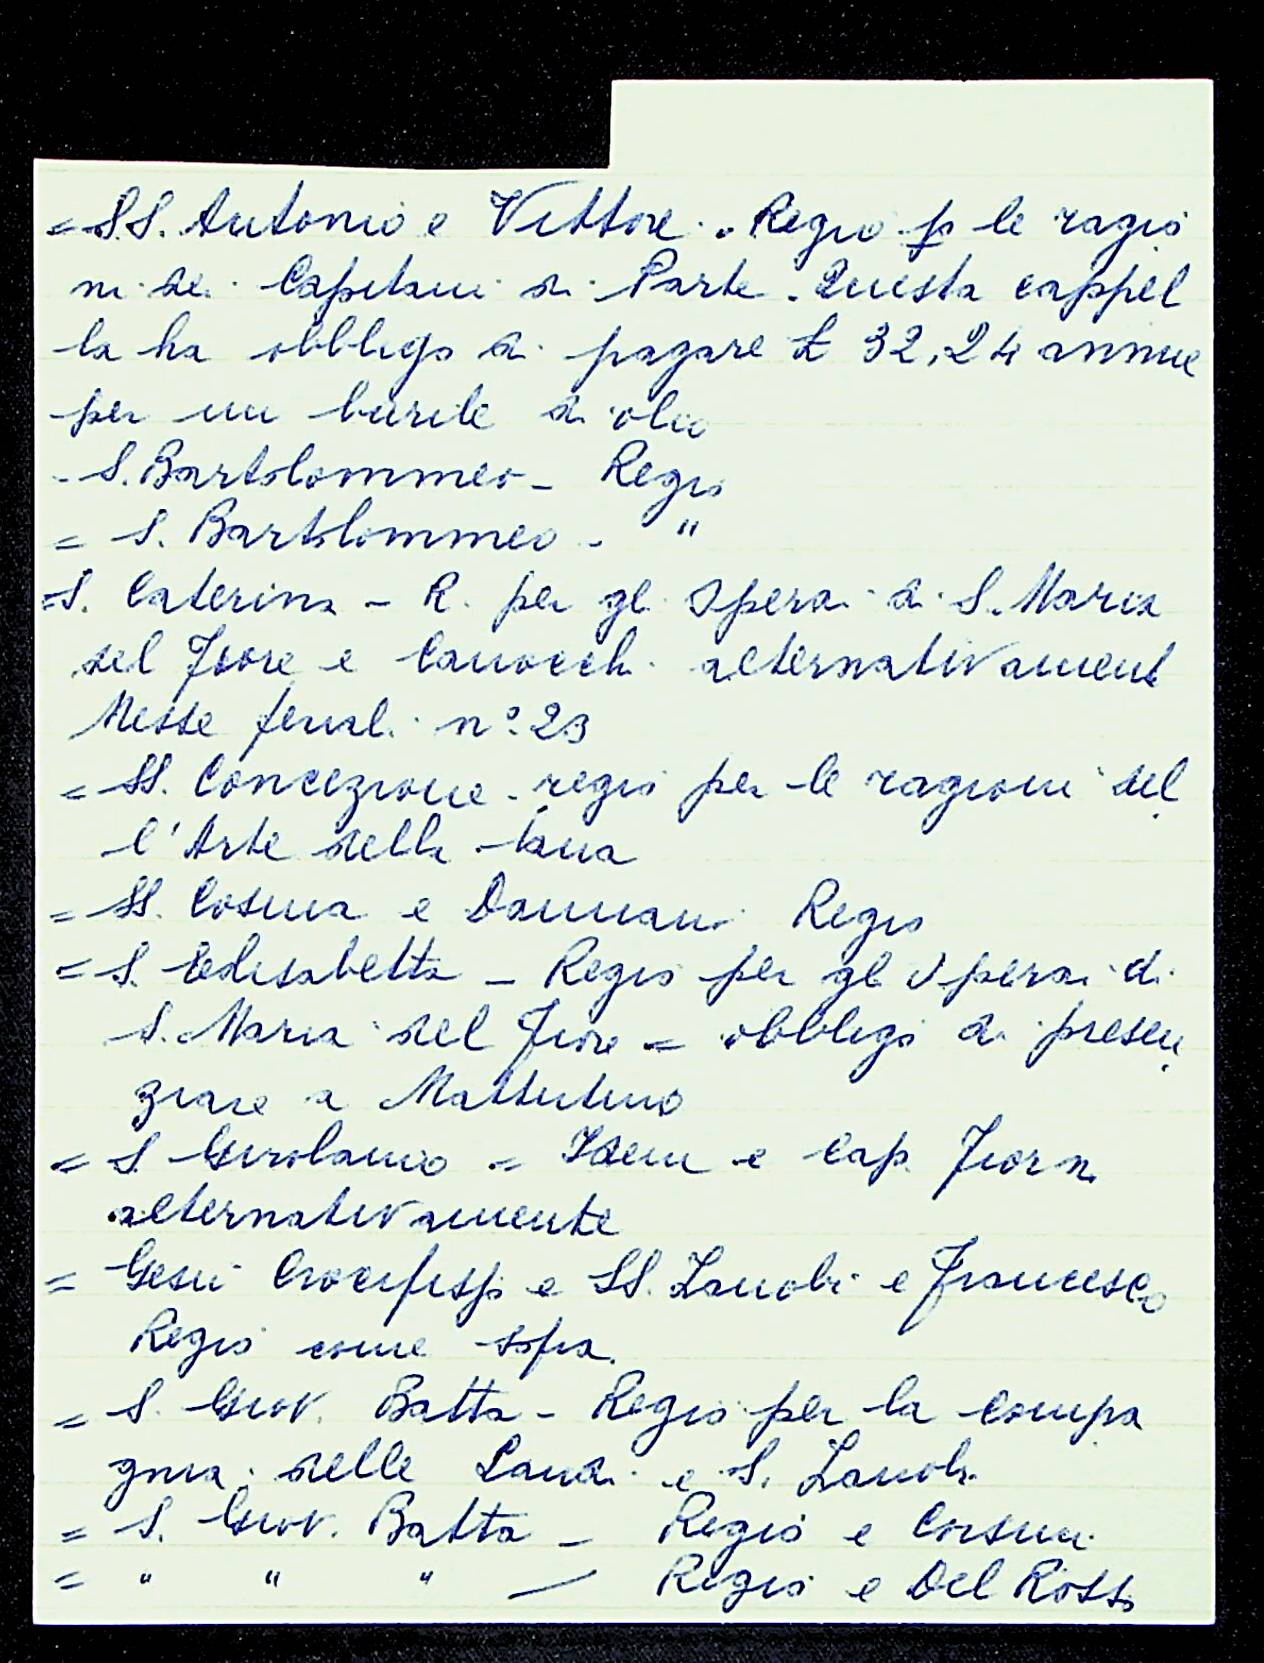 = SS. Antonio e Vittore. Regio p le ragio
ni dei Capitani di Parte. Questa cappel
la ha obbligo di pagare £ 32,24 annue
per un barile di olio
- S. Bartolommeo - Regio
= S. Bartolommeo - "
= S. Caterina - R. per gli Operai di S. Maria
del Fiore e Canocchi alternativament
Messe feriali n° 23
= SS. Concezione - regio per le ragioni del
l'Arte della lana
= SS. Cosma e Damiano Regio
= S. Elisabetta - Regio per gli Operai di
S. Maria del Fiore = obbligo di presen
ziare a Mattutino
= S Girolamo = Idem e Cap. Fior.
alternativamente
= Gesù Crocifisso e SS. Zanobi e Francesco
Regio come sopra.
= S. Giov. Batta - Regio per la compa
gnia delle Laudi e S. Zanobi
= S. Giov. Batta - Regio e Corsini
= " " " - Regio e Del Rosso